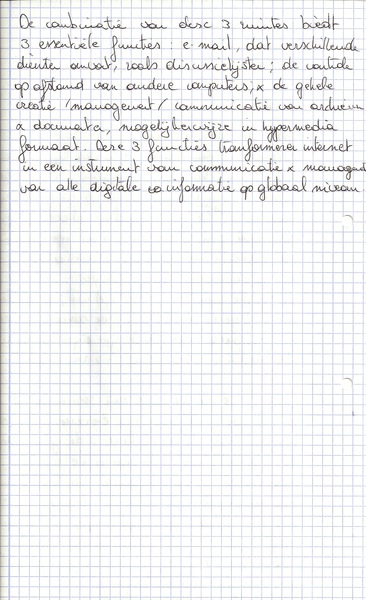 De combinatie van deze 3 ruimtes biedt
3 essentiële functies : e-mail, dat verschillende
diensten omvat, zoals discussielijsten ; de controle
op afstand van andere computers, & de gehele
creatie / management / communicatie van archieven
& documenten, mogelijkerwijze in hypermedia
formaat. Deze 3 functies transformeren internet
in een instrument van communicatie & management
van alle digitale informatie op globaal niveau